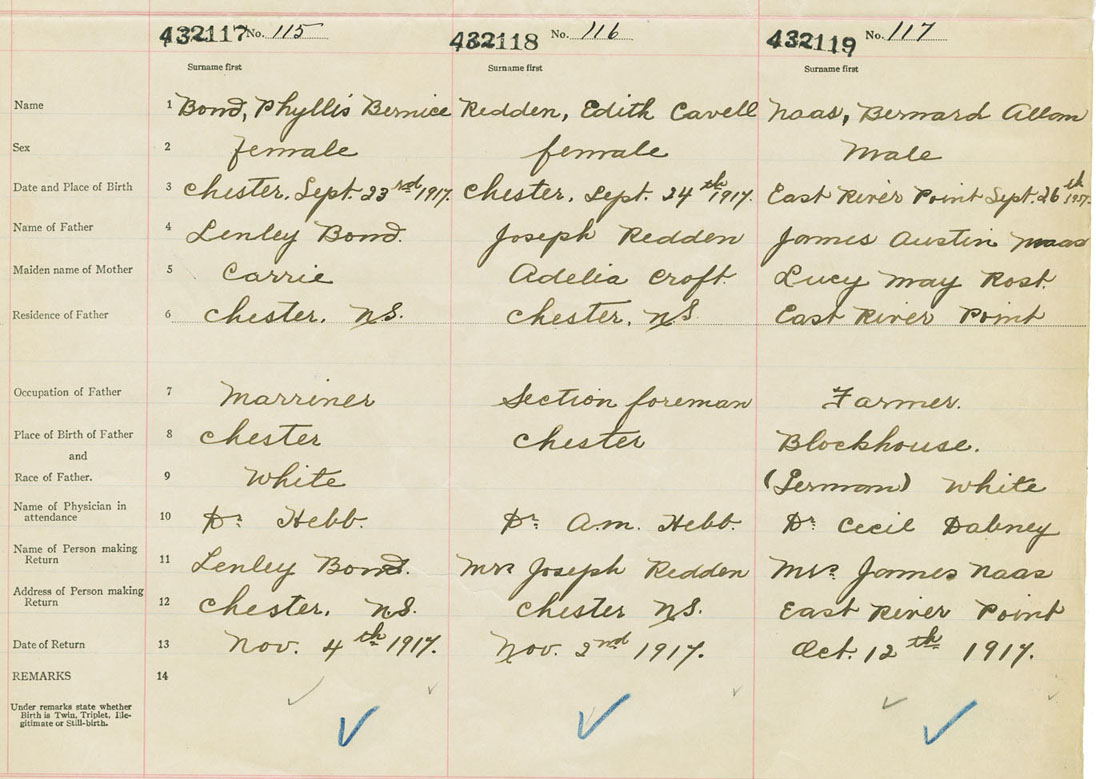 432117 No. 115 432118 No. 116 432119 No. 117
Surname first Surname first Surname first
Name 1 Bond, Phyllis Bernice Redden, Edith Cavell Naas, Bernard Allom
Sex 2 female female Male
Date and Place of Birth 3 Chester, Sept. 23rd 1917. Chester, Sept. 24th 1917. East River Point Sept. 26th 1917.
Name of Father 4 Lenley Bond. Joseph Redden James Austin Naas
Maiden name of Mother 5 Carrie Adelia Croft. Lucy May Rost.
Residence of Father 6 Chester, N.S. Chester, N.S. East River Point
Occupation of Father 7 Marriner Section foreman Farmer.
Place of Birth of Father 8 Chester Chester Blockhouse.
and
Race of Father. 9 White (German) White
Name of Physician in
attendance 10 Dr. Hebb. Dr. A.M. Hebb. Dr. Cecil Dabney
Name of Person making
Return 11 Lenley Bond. Mrs Joseph Redden Mrs. James Naas
Address of Person making
Return 12 Chester, N.S. Chester N.S. East River Point
Date of Return 13 Nov. 4th 1917. Nov. 2nd 1917. Oct. 12th 1917.
REMARKS 14
Under remarks state whether
Birth is Twin, Triplet, Ille-
gitimate or Still-birth.